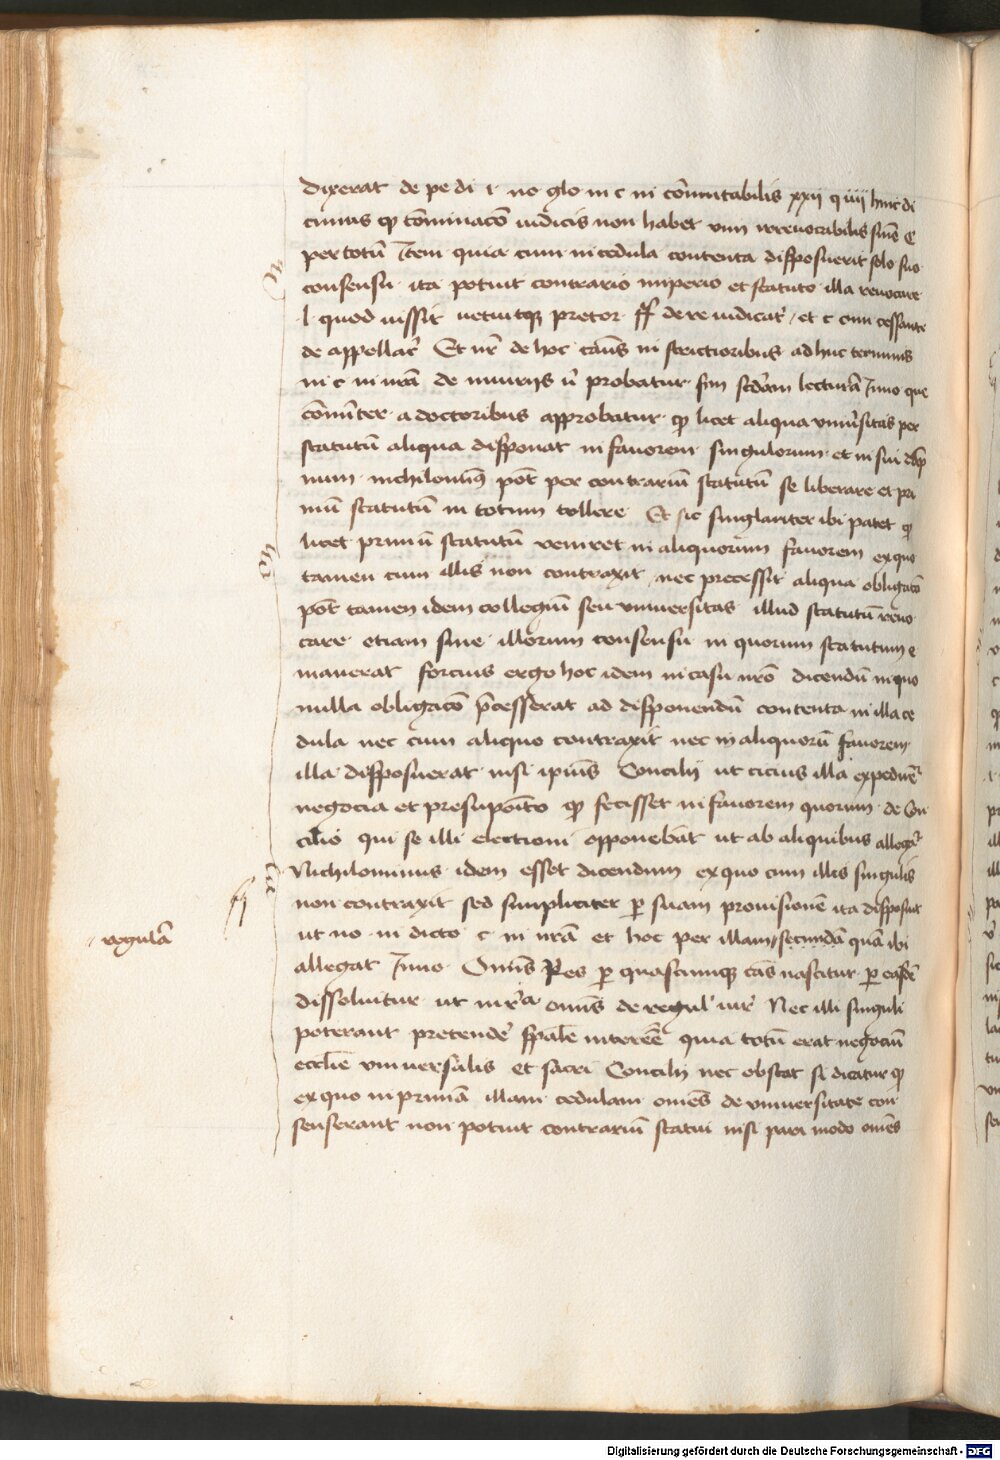 dixerat de pe di i no glo in c in cōmutabilis xxii q iiii hinc di
cimus ꝙ cōminacō iudicis non habet vim irrevocabilis sn̄ie C
per totū Item quia cum in cedula contenta disposuerit solo suo
consensu ita potuit contrario imperio et statuto illa revocare
l quod iussit vetuitqꝫ pretor ff de re iudicat̄ / et c cum cessante
de appellac̄ Et nr̄ de hoc casus in strictioribus adhuc terminis
in c in nr̄a de iniuriis ū probatur sm̄ scd̄am lecturā Inno que
cōmūter a doctoribus approbatur ꝙ licet aliqua vniūsitas per
statutū aliqua disponat in favorem singulorum et in sui
num nichilomin⁹ pōt per contrariū statutū se liberare et pri
mū statutū in totum tollere Et sic singlariter ibi patet ꝙ
licet primū statutū veniret in aliquorum favorem ex quo
tamen cum illis non contraxit / nec precessit aliqua obligatō
pōt tamen idem collegiū seu vniversitas illud statutū revo
care etiam sine illorum consensu in quorum statutum e
manerat forcius ergo hoc idem in casu nr̄o dicendū in quo
nulla obligacō p̄cesserat ad disponendū contenta in illa ce
dula nec cum aliquo contraxit nec in aliquorū favorem
illa disposuerat nisi ipius Concilii ut cicius illa expedirēt̄
negocia et presuposito ꝙ fecisset in favorem quorum de Con
cilio qui se illi electioni opponebāt ut ab aliquibus allegat̄
Nichilominus idem esset dicendum ex quo cum illis singulis
non contraxit sed simpliciter ꝑ suam provisionē ita disposuit
ut no in dicto c in nr̄a et hoc per illam secundā quā ibi
regulā
allegat Inno Omīs Res ꝑ quascumqꝫ cās nascitur ꝑ easdē
dissolvitur ut in r̄a omīs de regul' iur̄ Nec illi singuli
poterant pretende̅ sp̄ale interēē quia totū erat negociū
ecclīe vniversalis et sacri Concilii nec obstat si dicatur ꝙ
ex quo in primā illam cedulam omēs de vniversitate con
senserant non potuit contrariū statui nisi pari modo omēs
Digitalisierung gefördert durch die Deutsche Forschungsgemeinschaft - DFG